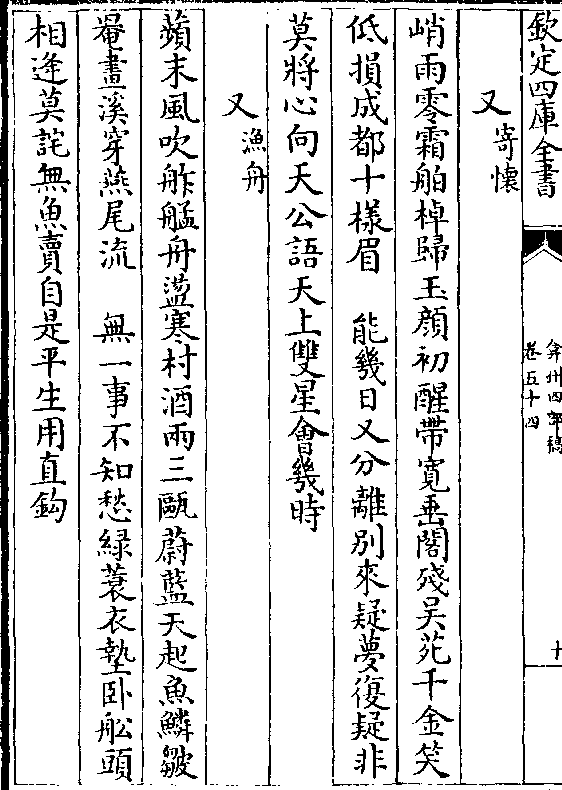 欽定四庫全書
弇州四部稿
卷五十四
十
又寄懷
峭雨零霜舶棹歸玉顔初醒帶寛垂閣殘吴苑千金笑
低損成都十様眉　能幾日又分離别來疑夢復疑非
莫將心向天公語天上雙星會幾時
又漁舟
蘋末風吹舴艋舟盪寒村酒兩三甌蔚藍天起魚鱗皺
罨畫溪穿燕尾流　無一事不知愁緑蓑衣墊卧舩頭
相逢莫詫無魚賣自是平生用直鈎